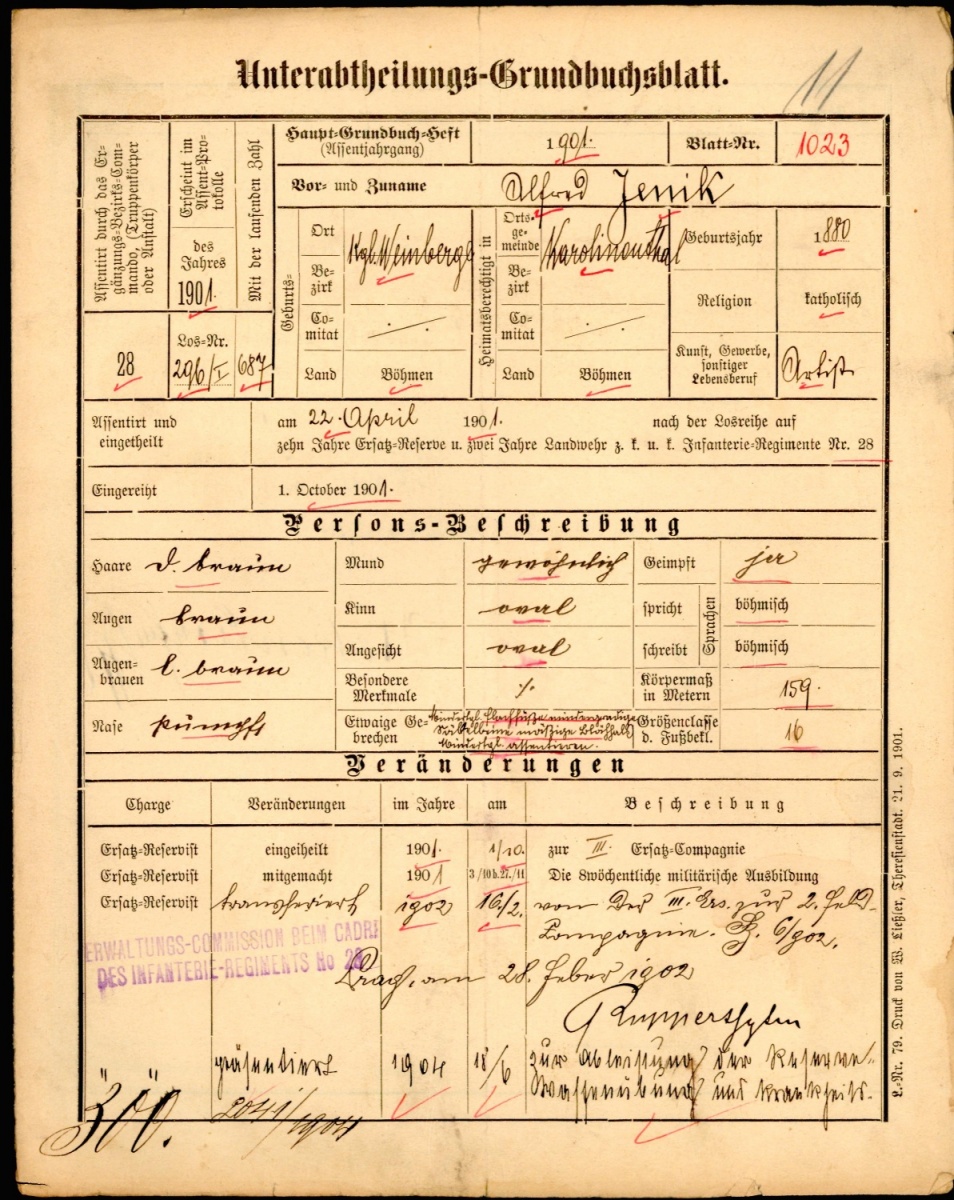 11
Unterabtheilungs-Grundbuchsblatt.
Assentirt durch das Er-
gänzungs-Bezirks-Com-
mando, (Truppenkörper
oder Anstalt)
28
Erscheint im
Assent-Pro-
tokolle
des
Jahres
1901.
Los-Nr.
296/I
Mit der laufenden Zahl
687
Haupt-Grundbuch-Heft
(Assentjahrgang)
1901.
Blatt-Nr.
1023
Vor- und Zuname
Alfred Jenik
Geburts-
Ort
Be-
zirk
Kgl. Weinberge
Co-
mitat
·/·
Land
Böhmen
Heimatsberechtigt in
Orts-
ge-
meinde
Be-
zirk
Karolinenthal
Co-
mitat
·/·
Land
Böhmen
Geburtsjahr
1880
Religion
katholisch
Kunst, Gewerbe,
sonstiger
Lebensberuf
Artist
Assentirt und
eingetheilt
am 22. April 1901. nach der Losreihe auf
zehn Jahre Ersatz-Reserve u. zwei Jahre Landwehr z. k. u. k. Infanterie-Regimente Nr. 28
Eingereiht
1. October 1901.
Persons-Beschreibung
Haare d. braun
Augen braun
Augen-
brauen l. braun
Nase stumpf
Mund gewöhnlich
Kinn oval
Angesicht oval
Besondere
Merkmale ·/.
Etwaige Ge-
brechen
mindertgl. Plattfüße mindergradige
Säbelbeine mäßige Blähhals
Mindertgl. assentieren.
Geimpft ja
spricht
schreibt
Sprachen
böhmisch
böhmisch
Körpermaß
in Metern 159.
Größenclasse
d. Fußbekl. 16
Veränderungen
Charge Veränderungen im Jahre am Beschreibung
Ersatz-Reservist eingetheilt 1901. 1/10. zur III. Ersatz-Compagnie
Ersatz-Reservist mitgemacht 1901 3/10 b. 27./11 Die 8wöchentliche militärische Ausbildung
Ersatz-Reservist transferiert 1902 16./2. von der III. Ers. zur 2. Feld-
Compagnie. 6/902.
VERWALTUNGS-COMMISSION BEIM CADRE
DES INFANTERIE-REGIMENTS No 28
Prag, am 28. Feber 1902
präsentiert 1904 18/6 zur Ableistung der Reserve-
Waffenübung und krankheits-
300.
2041/1904
L.-Nr. 79. Druck von W. Ließler, Theresienstadt. 21. 9. 1901.